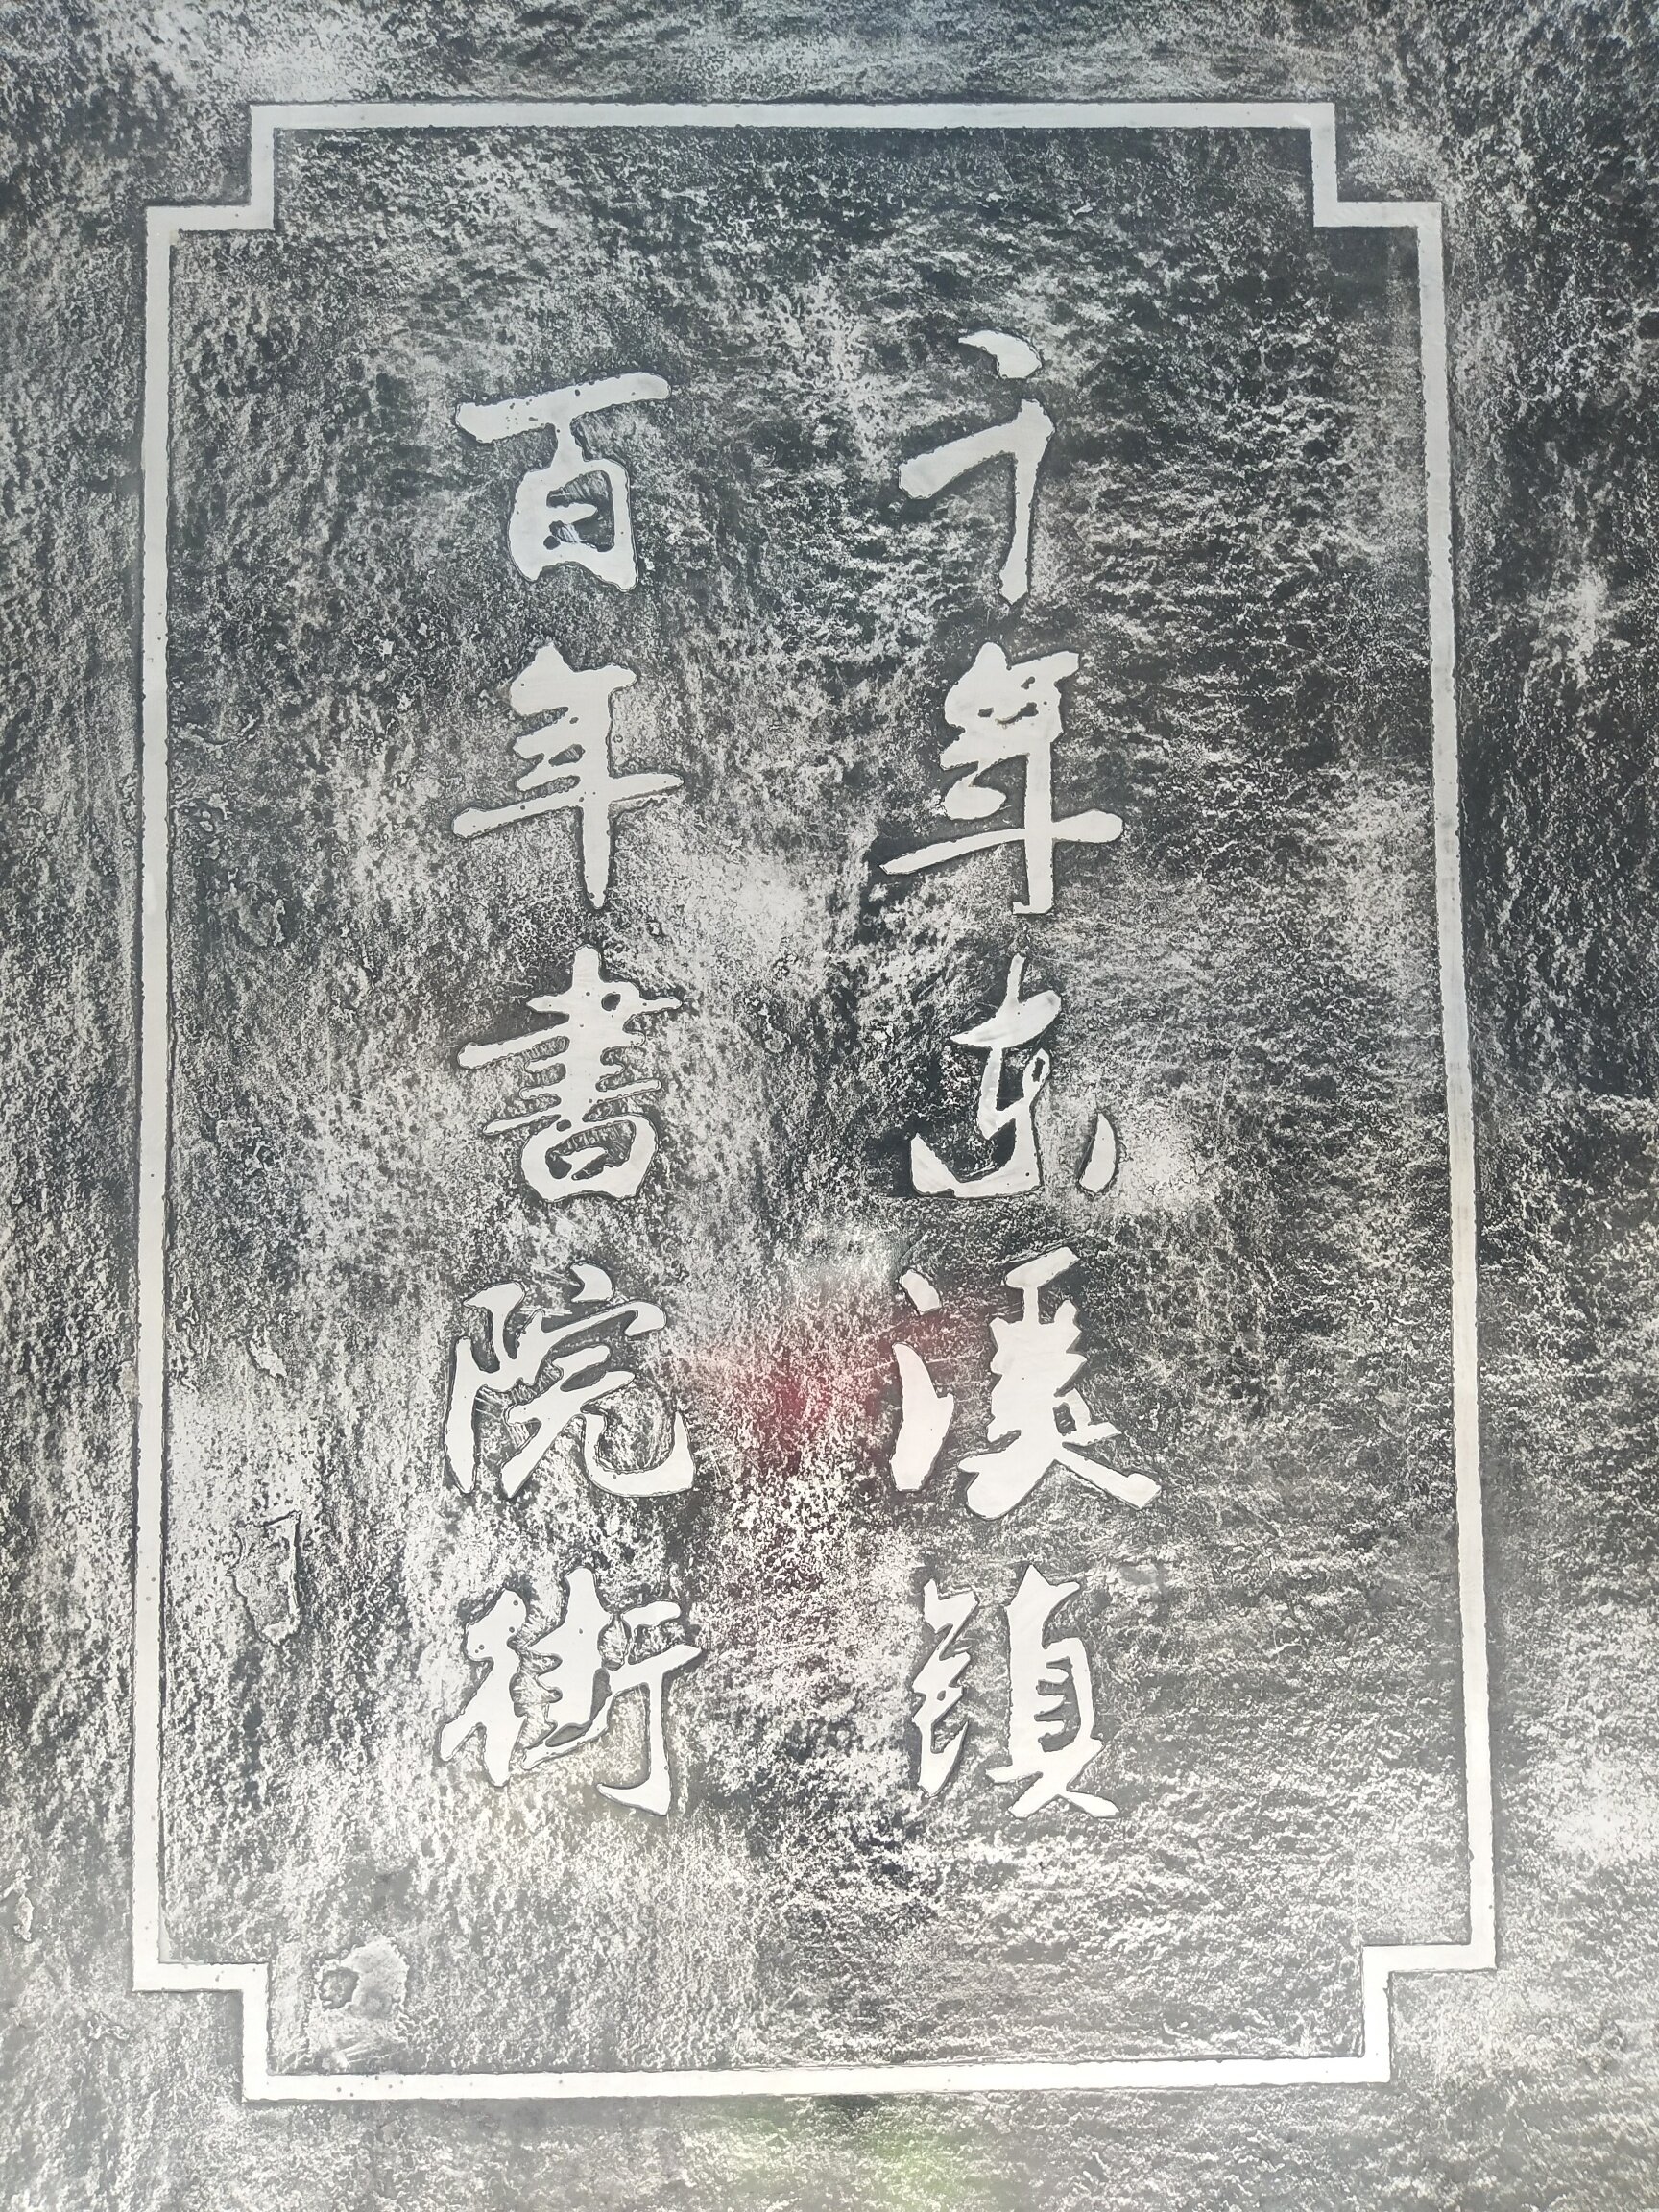 千年东溪镇
百年書院街